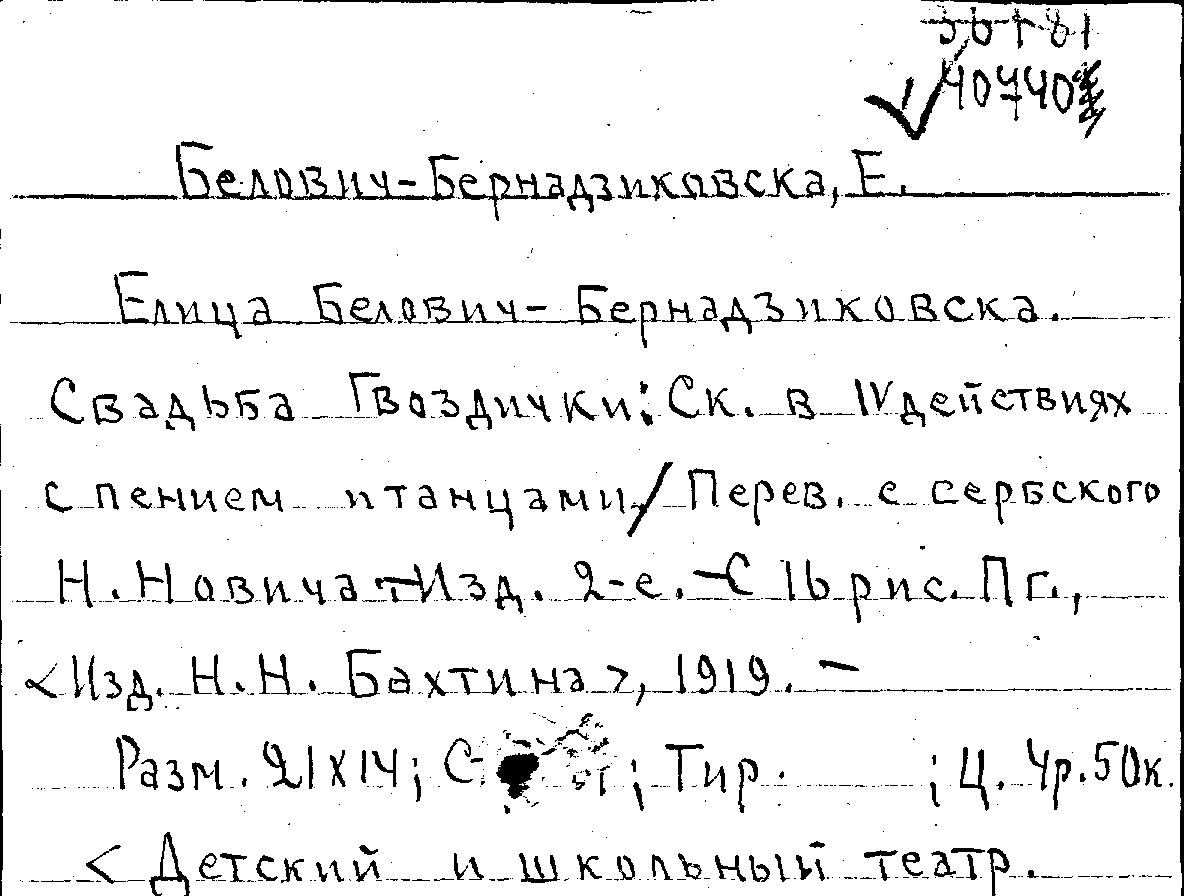 36781
40740
Белович-Бернадзиковска, Е.
Елица Белович-Бернадзиковска.
Свадьба Гвоздички: Ск. в IV действиях
с пением и танцами / Перев. с сербского
Н. Новича.—Изд. 2-е. — С 16 рис. Пг.,
<Изд. Н.Н. Бахтина>, 1919. —
Разм. 21х14; С. ; Тир. ; Ц. 4р.50к.
< Детский и школьный театр.